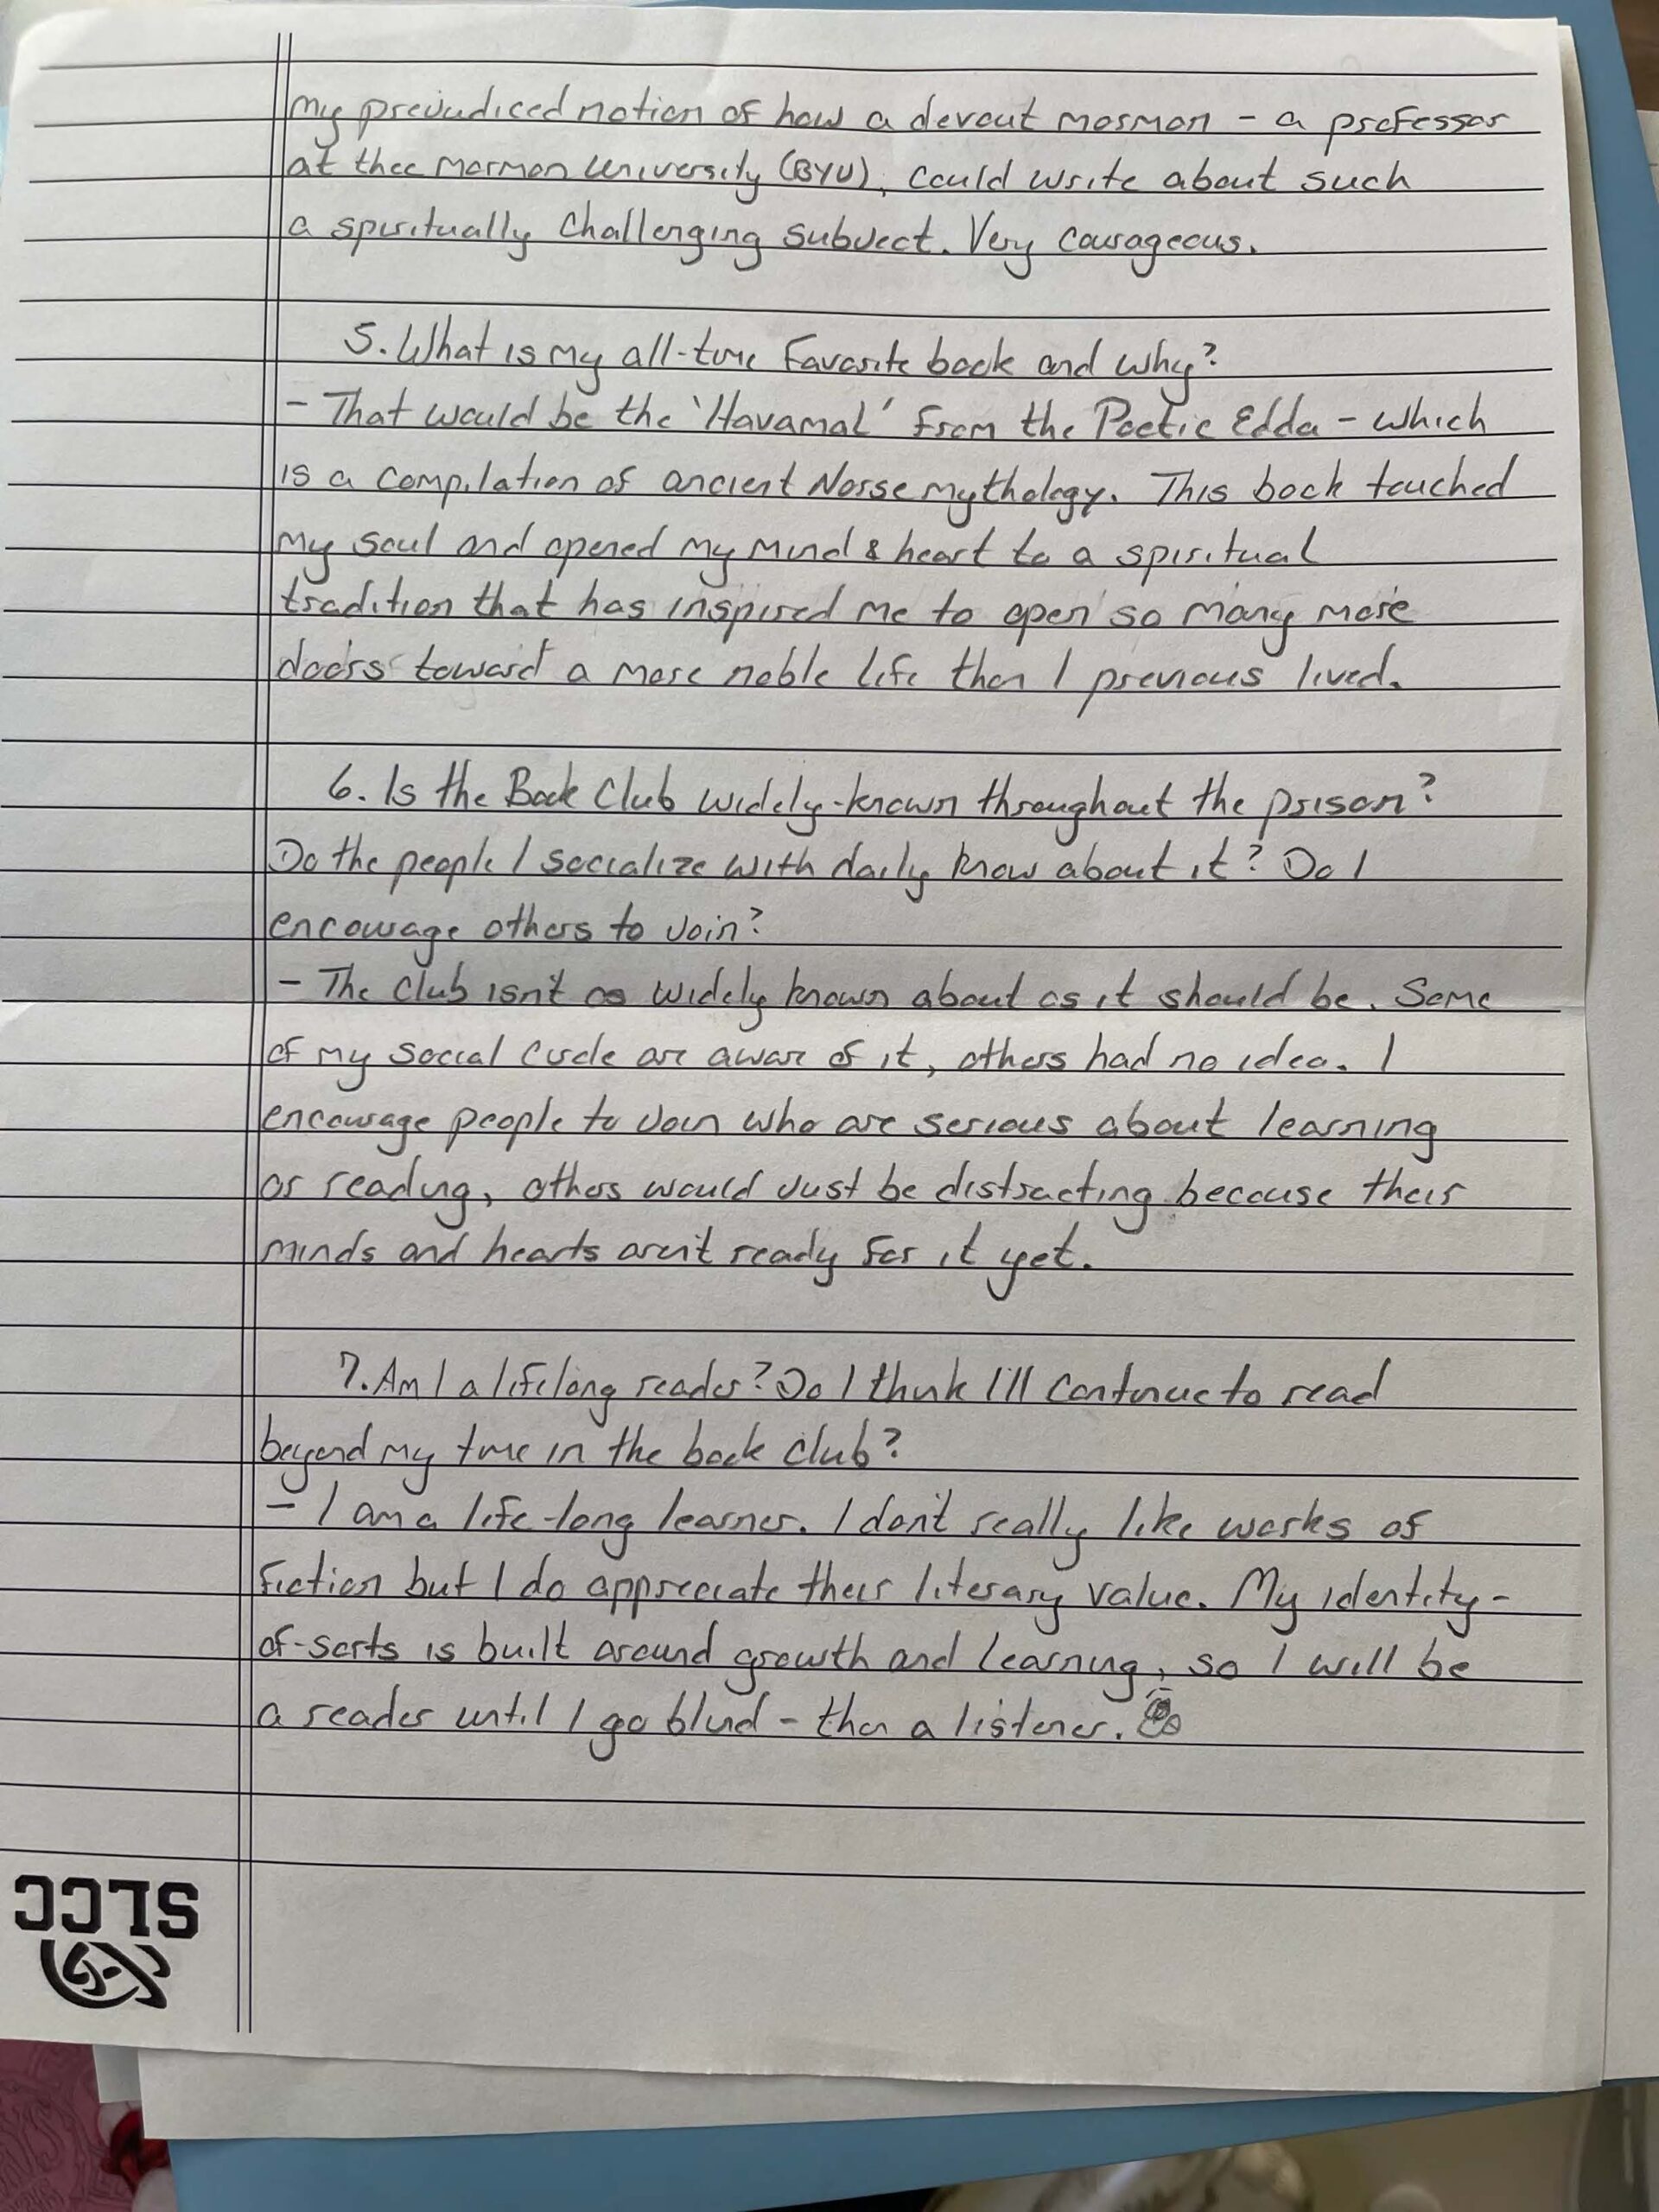 my prejudiced notion of how a devout mormon - a professor
at thee Mormon University (BYU), could write about such
a spiritually challenging subject. Very courageous.
5. What is my all-time favorite book and why?
- That would be the 'Havamal' from the Poetic Edda - which
is a compilation of ancient Norse mythology. This book touched
my soul and opened my mind & heart to a spiritual
tradition that has inspired me to open so many more
doors toward a more noble life than I previous lived.
6. Is the Book Club widely-known throughout the prison?
Do the people I socialize with daily know about it? Do I
encourage others to join?
- The club isn't as widely known about as it should be. Some
of my social circle are aware of it, others had no idea. I
encourage people to join who are serious about learning
or reading, others would just be distracting because their
minds and hearts aren't ready for it yet.
7. Am I a lifelong reader? Do I think I'll continue to read
beyond my time in the book club?
- I am a life-long learner. I don't really like works of
fiction but I do appreciate their literary value. My identity-
of-sorts is built around growth and learning, so I will be
a reader until I go blind - then a listener.
SLCC